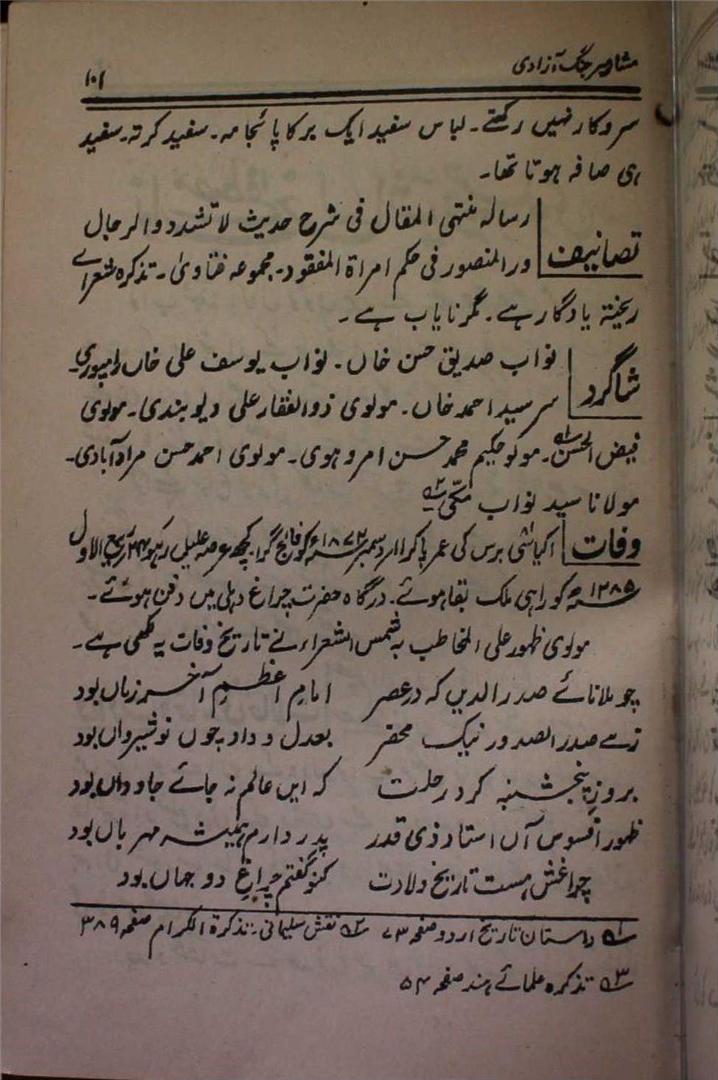 مشاہیر جنگ آزادی
۱۰۱
سروکار نہیں رکھتے۔ لباس سفید ایک برکا پائجامہ۔ سفید کرتہ۔ سفید
ہی صافہ ہوتا تھا۔
تصانیف رسالہ منتہی المقال فی شرح حدیث لا تشدد والرحال
ور المنصور فی حکم امراة المفقود۔ مجموعہ فتاویٰ۔ تذکرہ شعرائے
ریختہ یادگار ہے۔ گمر نایاب ہے۔
شاگرد نواب صدیق حسن خاں۔ نواب یوسف علی خاں رامپوری۔
سرسید احمد خاں۔ مولوی ذوالفقار علی دیوبندی۔ مولوی
فیض الحسن۱؎۔ مولوی حکیم محمد حسن امروہوی۔ مولوی احمد حسن مرادآبادی۔
مولانا سید نواب مکی۲؎
وفات اکیاسی برس کی عمر پاکر ۱۱ دسمبر ۱۸۷۲ء کو فالج گرا۔ کچھ عرصہ علیل رہکر ۲۴ ربیع الاول
۱۲۸۵ھ کو راہی ملک بقا ہوئے۔ درگاہ حضرت چراغ دہلی میں دفن ہوئے۔
مولوی ظہور علی المخاطب بہ شمس الشعراء نے تاریخ وفات یہ لکھی ہے۔
چو مولانائے صدر الدیں کہ در عصر امامِ اعظمِ آخر زماں بود
زہے صدر الصدور نیک محضر بعدل و داد چوں نوشیرواں بود
بروز پنجشنبہ کرد رحلت کہ ایں عالم نہ جائے جاوداں بود
ظہور افسوس آں استاد ذی قدر پدر دارم ہمیشہ مہرباں بود
چراغش ہست تاریخ ولادت کنو گفتم چراغِ دو جہاں بود
۱؎ داستان تاریخ اردو صفحہ ۷۳ ۲؎ نقش سلیمانی۔ تذکرة الکرام صفحہ ۳۸۹
۳؎ تذکرہ علمائے ہند صفحہ ۵۴